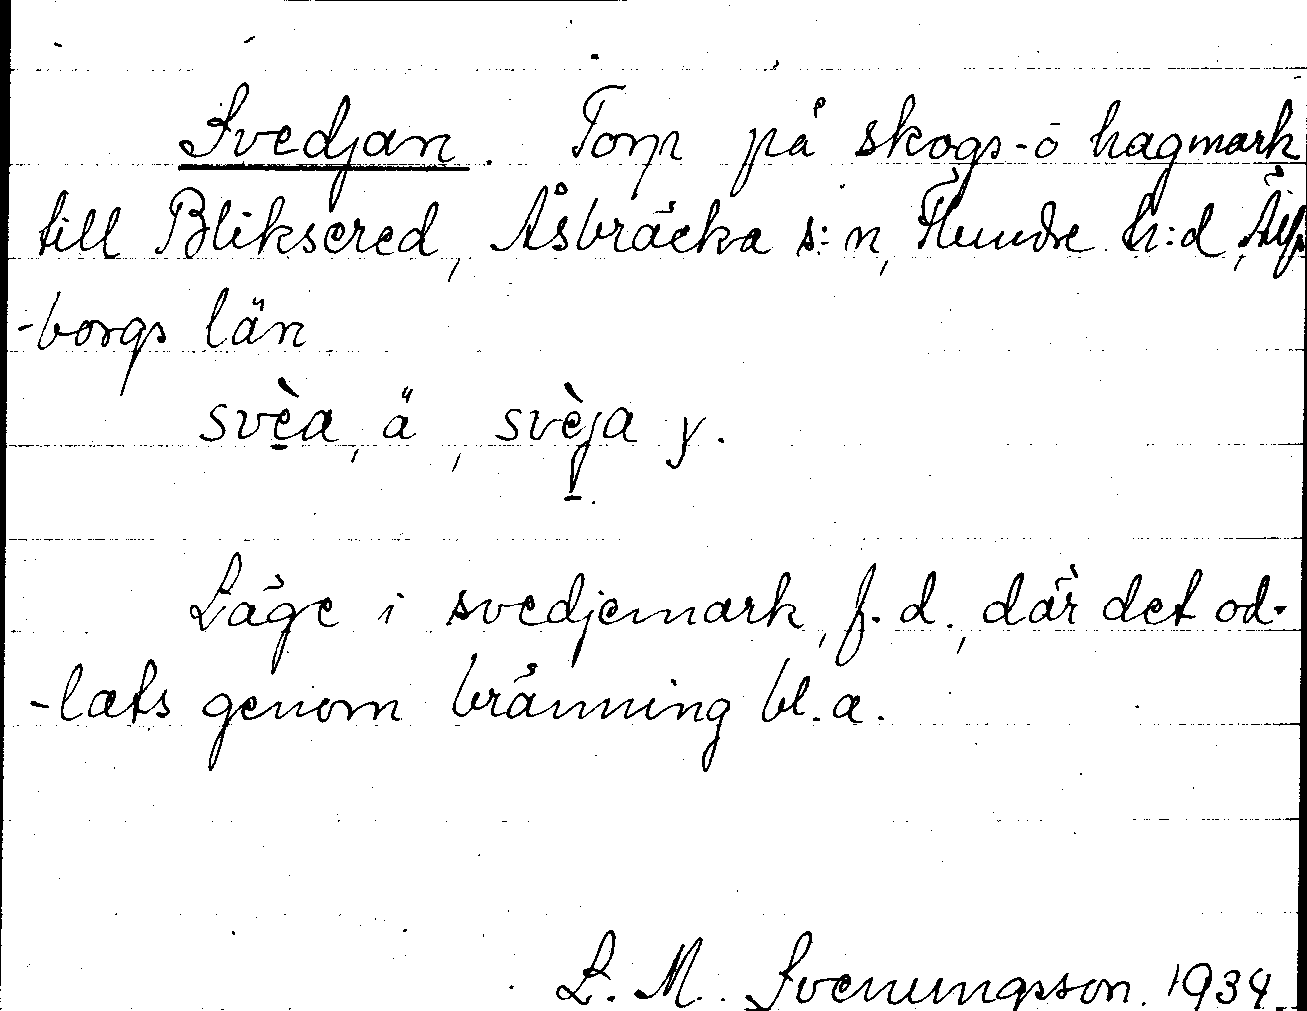 Svedjan. Torp på skogs-o hagmark
till Bliksered, Åsbräcka s:n, Flundre h:d, Älfs-
-borgs län
svèa, ä, svèja y.
Läge i svedjemark, f.d., där det od-
-lats genom bränning bl.a.
L. M. Svenungsson. 1934.